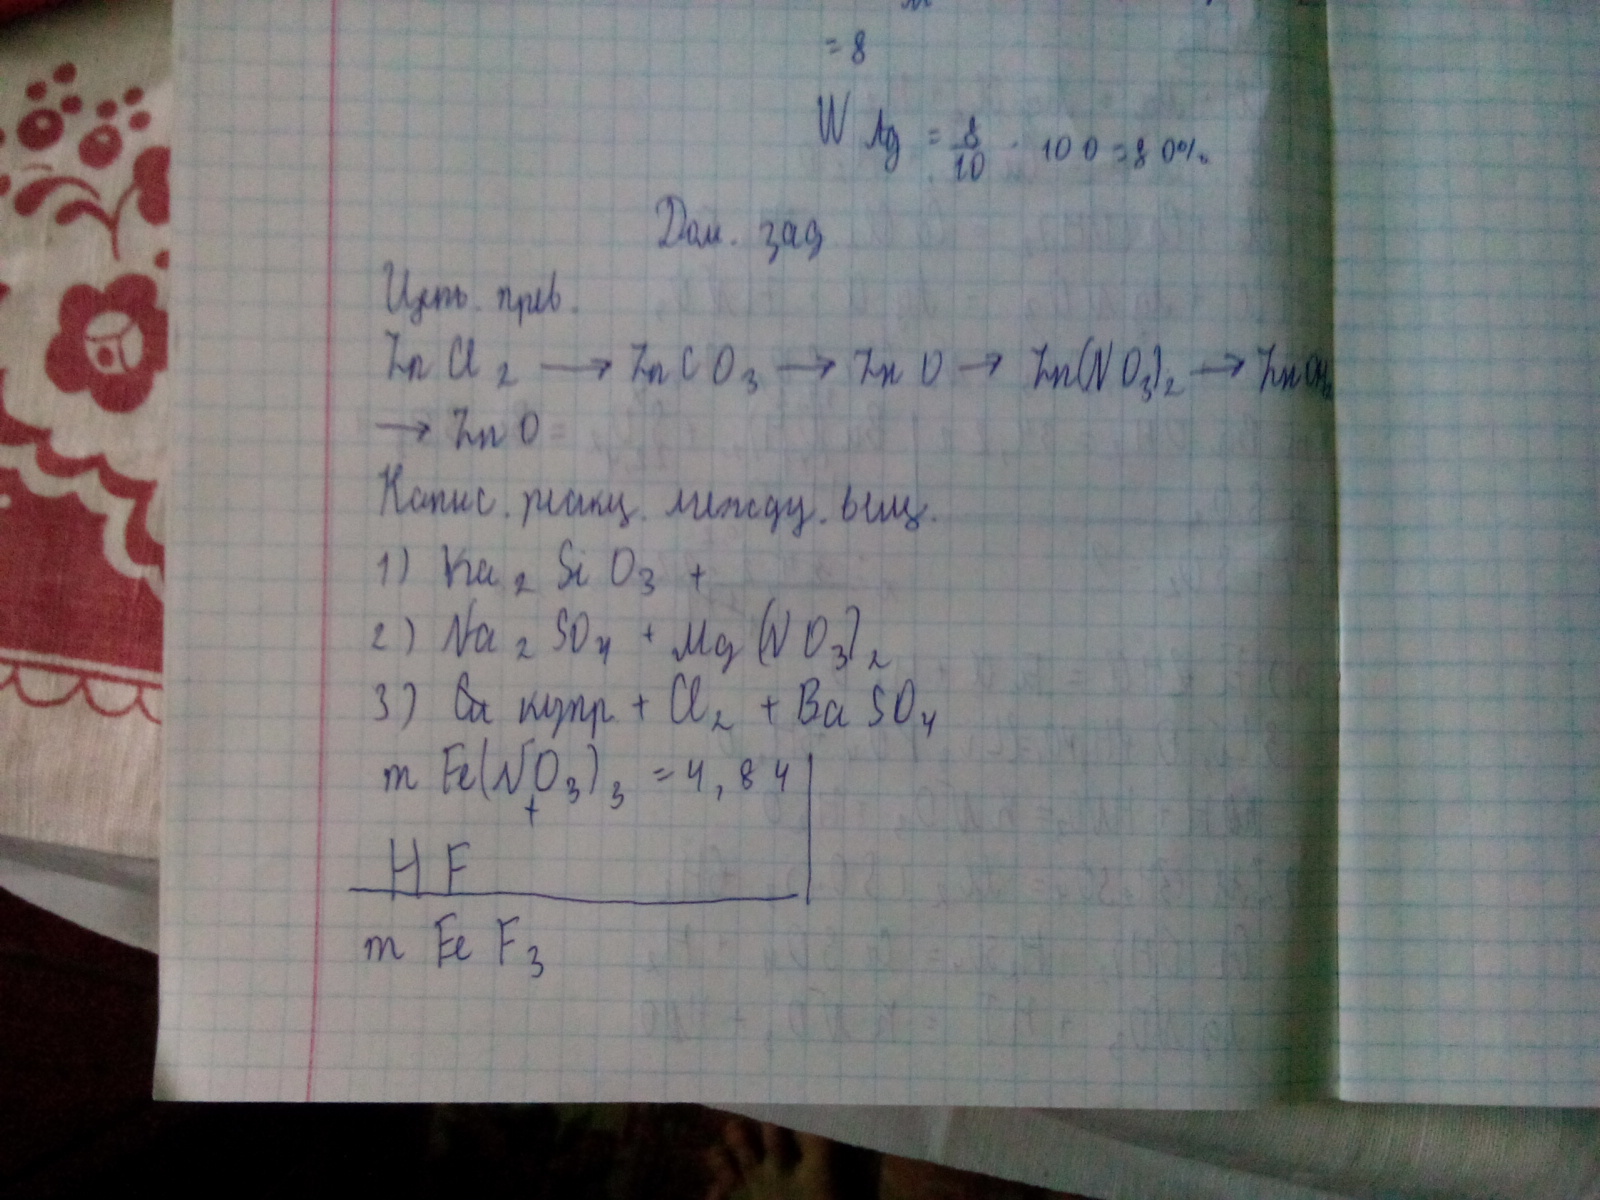 = 8
W Ag = 8/10 · 100 = 80%
Дом. зад
Цепь. прев.
ZnCl2 → ZnCO3 → ZnO → Zn(NO3)2 → ZnOH2
→ ZnO
Напис. реакц. между. вещ.
1) Na2SiO3 +
2) Na2SO4 + Mg(NO3)2
3) купр + Cl2 + BaSO4
m Fe(NO3)3 = 4,84
+
HF
m FeF3